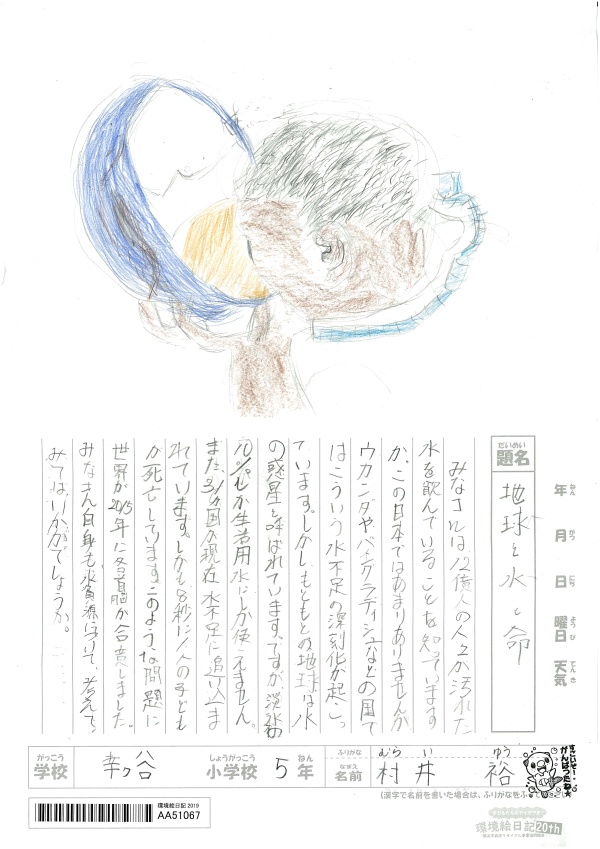 だいめい
題名
地球と水と命
年 ねん
月 がつ
日 にち
曜日 ようび
天気 てんき
みなさんは12億人の人々が汚れた
水を飲んでいることを知っています
か。この日本ではあまりありませんが
ウガンダやバングラディシュなどの国で
はこういう水不足の深刻化が起こっ
ています。しかし、もともとの地球は水
の惑星と呼ばれています。ですが、淡水の
10%しか生活用水にしか使えません。
また、31ヵ国が現在水不足に追い込ま
れています。しかも、8秒に1人の子ども
が死亡しています。このような問題に
世界が2015年に各首脳が合意しました。
みなさん自身も水資源について、考えて
みてはいかがでしょうか。
がっこう
学校
谷
しょうがっこう
小学校
5
ねん
年
ふりがな
むらい ゆう
なまえ
名前
村井 裕
(漢字で名前を書いた場合は、ふりがなをふ
環境絵日記 2019
AA51067
環境絵日記 20th